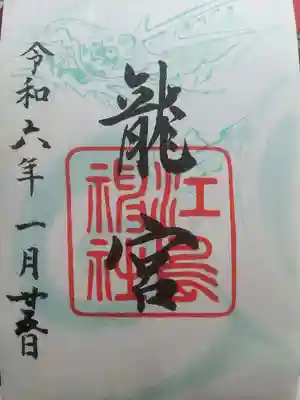 龍宮
江島
神社
令和六年一月廿五日